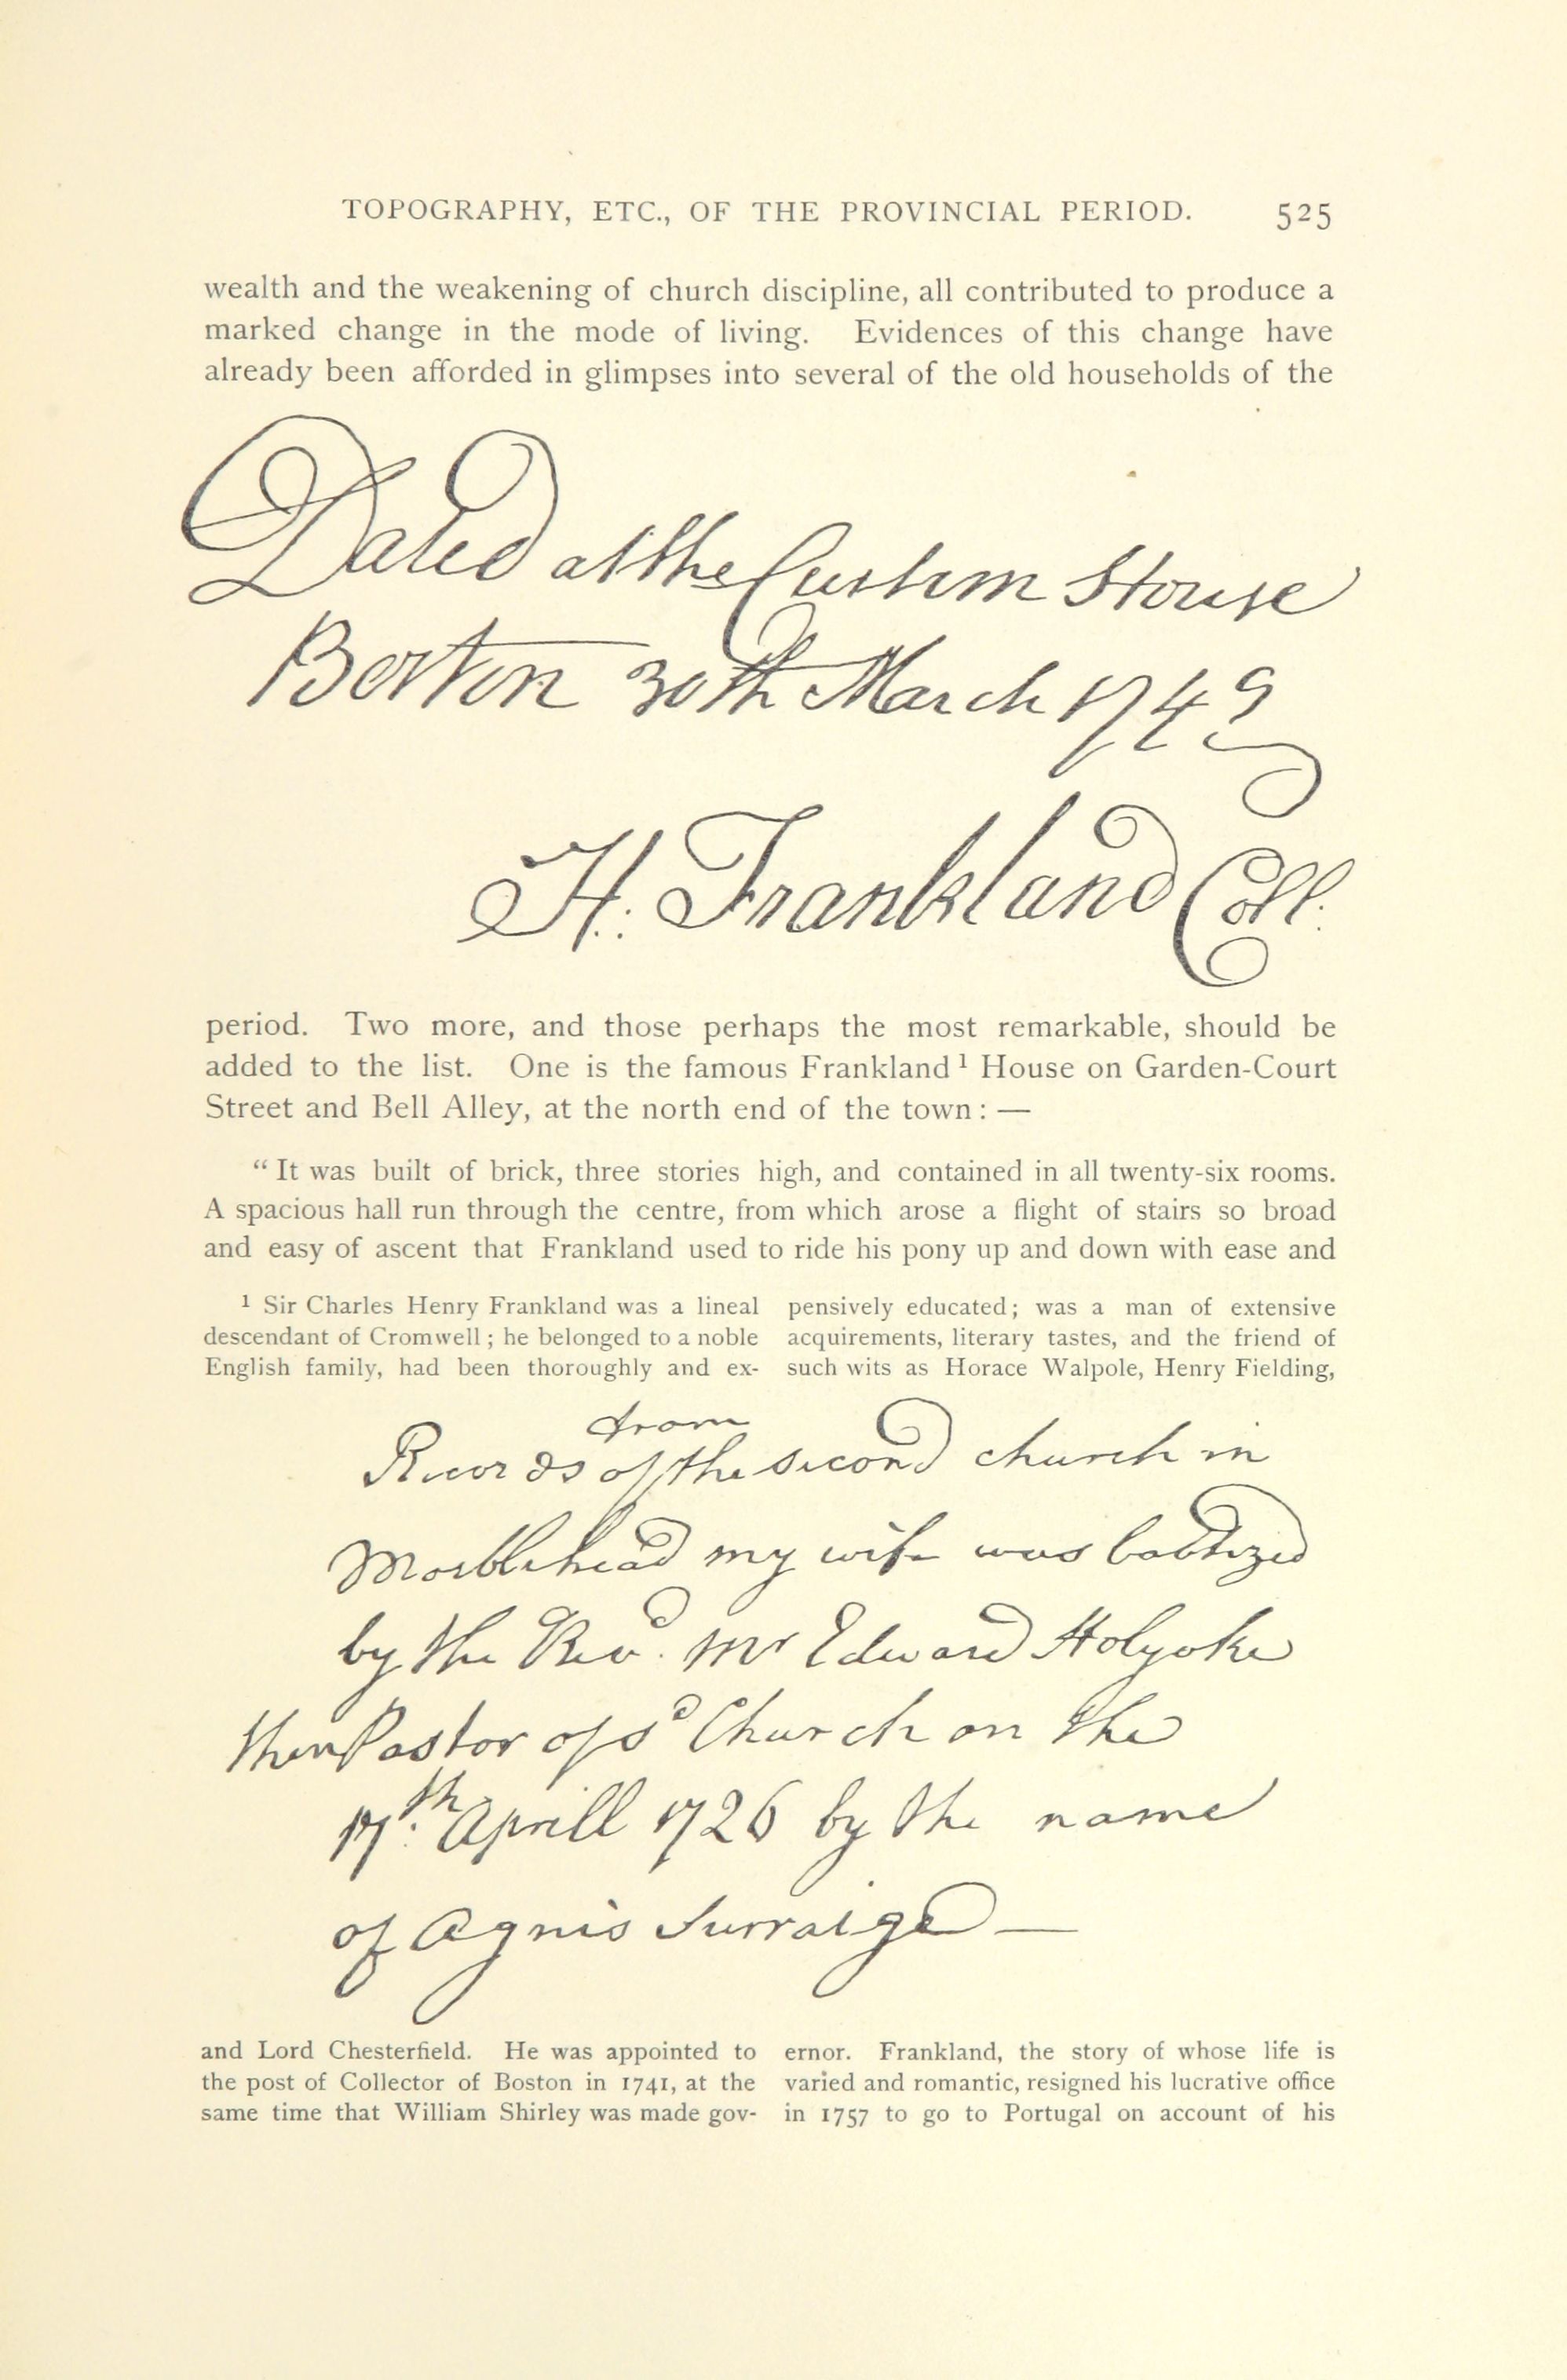 TOPOGRAPHY, ETC., OF THE PROVINCIAL PERIOD. 525
wealth and the weakening of church discipline, all contributed to produce a
marked change in the mode of living. Evidences of this change have
already been afforded in glimpses into several of the old households of the
Dated at the Custom House
Boston 30th March 1749
H. Frankland Coll.
period. Two more, and those perhaps the most remarkable, should be
added to the list. One is the famous Frankland¹ House on Garden-Court
Street and Bell Alley, at the north end of the town: —
“It was built of brick, three stories high, and contained in all twenty-six rooms.
A spacious hall run through the centre, from which arose a flight of stairs so broad
and easy of ascent that Frankland used to ride his pony up and down with ease and
¹ Sir Charles Henry Frankland was a lineal
descendant of Cromwell; he belonged to a noble
English family, had been thoroughly and ex-
pensively educated; was a man of extensive
acquirements, literary tastes, and the friend of
such wits as Horace Walpole, Henry Fielding,
from
Records of the second church in
Marblehead my wife was babtized
by the Revd. Mr Edward Holyoke
then Pastor of sd Church on the
17th. Aprill 1726 by the name
of Agnis Surraige —
and Lord Chesterfield. He was appointed to
the post of Collector of Boston in 1741, at the
same time that William Shirley was made gov-
ernor. Frankland, the story of whose life is
varied and romantic, resigned his lucrative office
in 1757 to go to Portugal on account of his